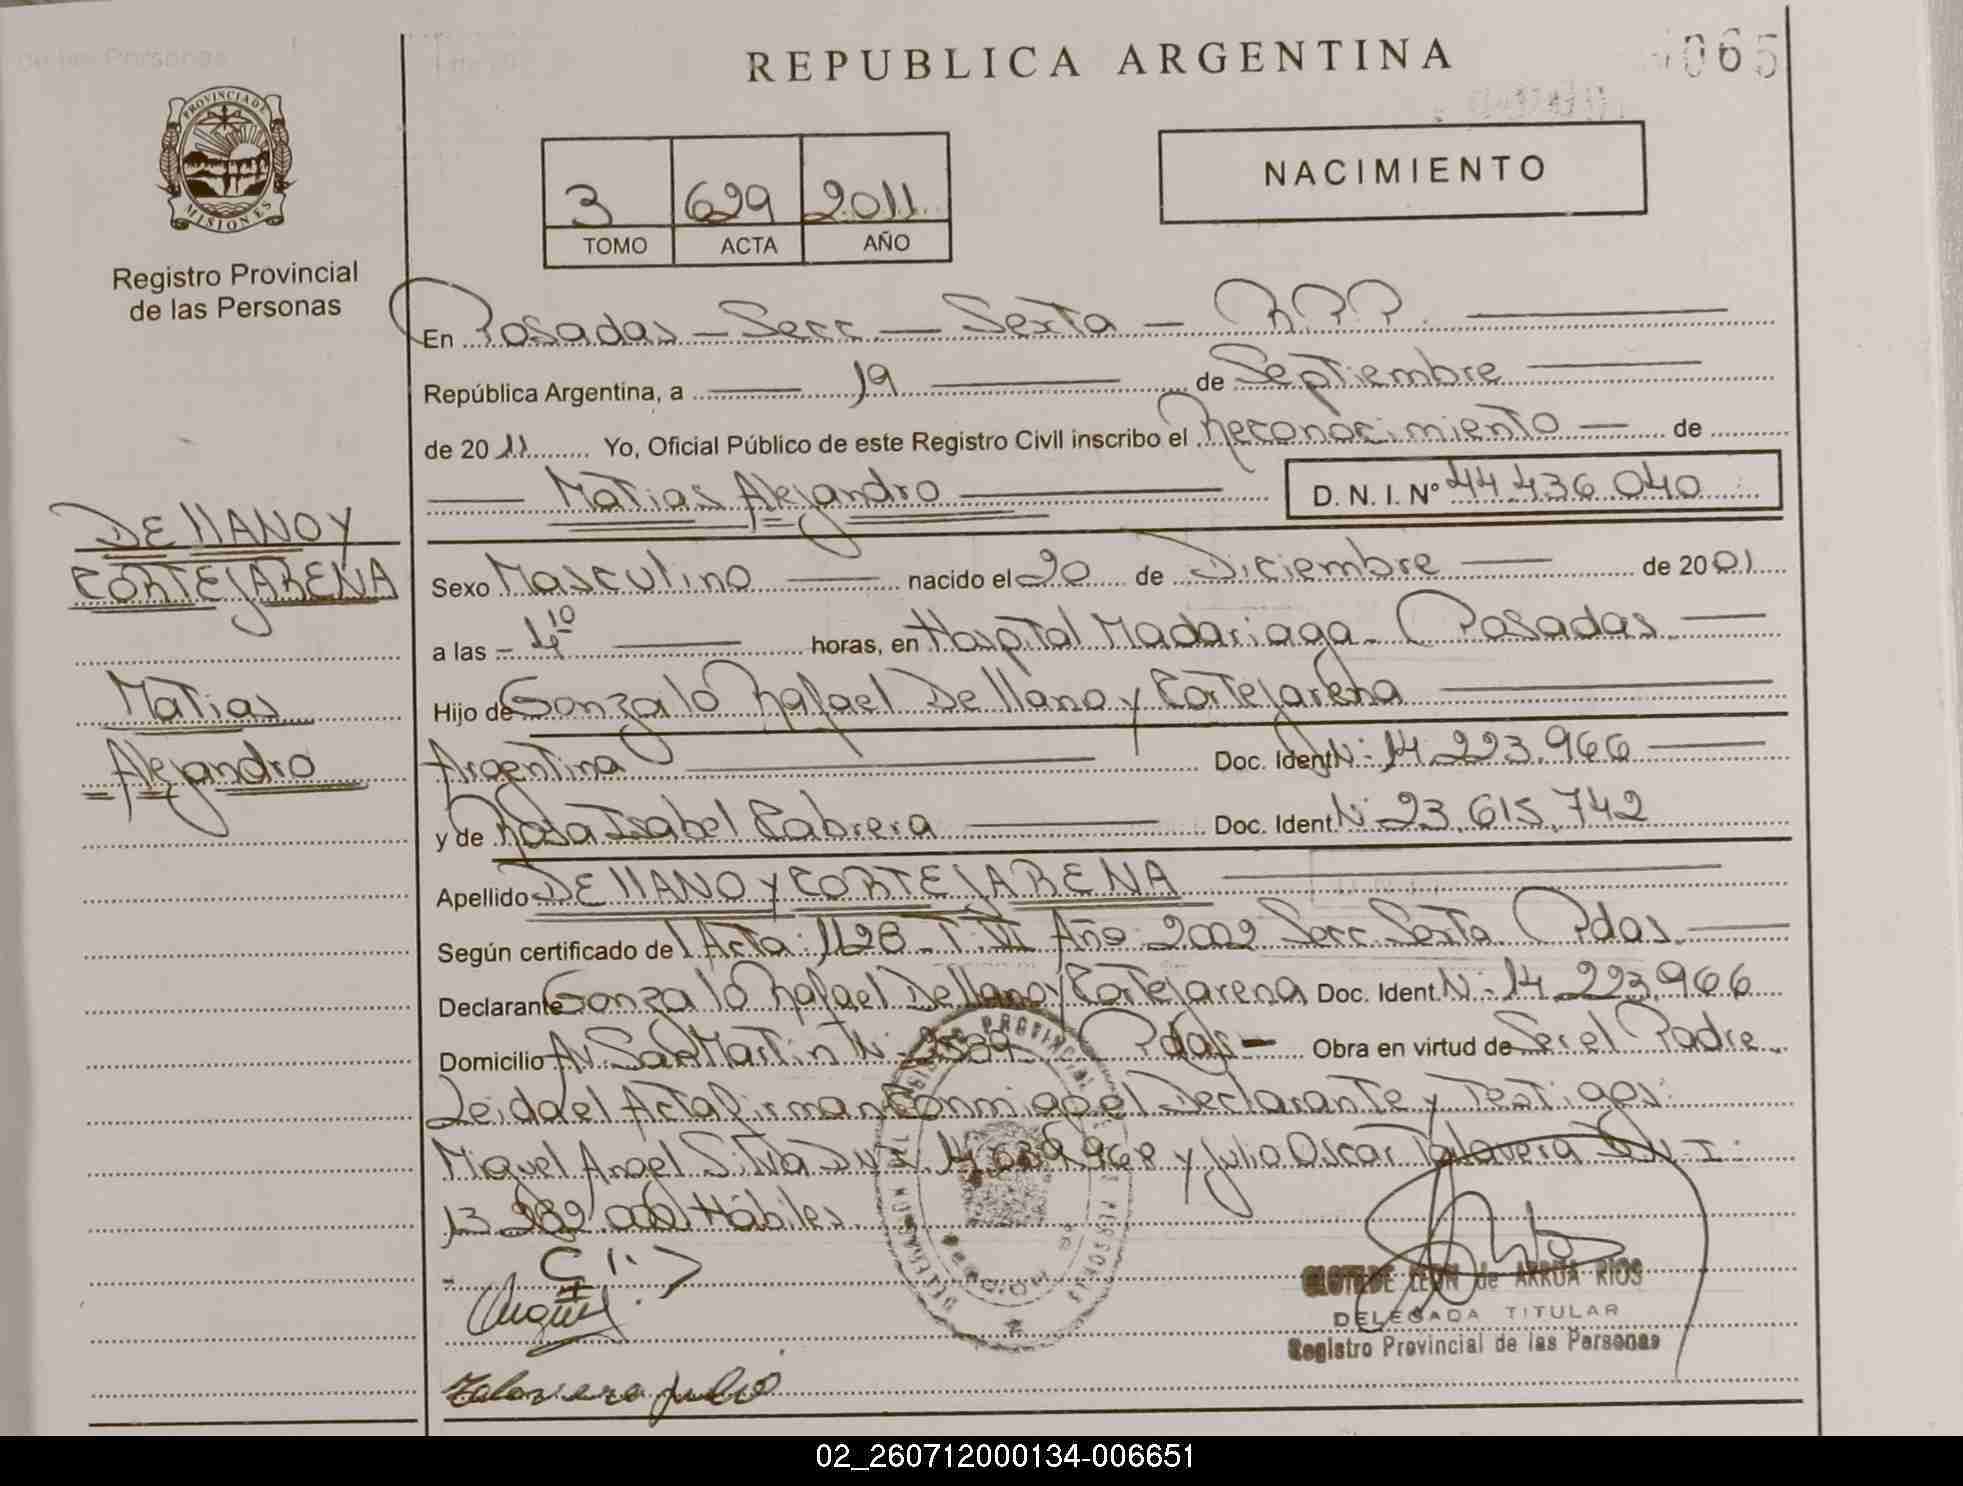 REPUBLICA ARGENTINA
065
PROVINCIA DE
MISIONES
Registro Provincial
de las Personas
NACIMIENTO
3 629 2011
TOMO ACTA AÑO
En Posadas - Secc. - Sexta - R.P.P.
República Argentina, a 19 de Septiembre
de 2011 Yo, Oficial Público de este Registro Civil inscribo el Reconocimiento de
Matias Alejandro D.N.I. Nº 44.436.040
DE LLANO Y
CORTEJARENA
Matias
Alejandro
Sexo Masculino nacido el 20 de Diciembre de 2001
a las 4 10 horas, en Hospital Madariaga - Posadas
Hijo de Gonzalo Rafael De llano y Cortejarena
Argentina Doc. Ident. N: 14.223.966
y de Rosa Isabel Cabrera Doc. Ident. N: 23.615.742
Apellido DE LLANO Y CORTEJARENA
Según certificado del Acta: 1128 - T. VI Año 2002 Secc. Sexta Pdas.
Declarante Gonzalo Rafael De llano y Cortejarena Doc. Ident. N: 14.223.966
Domicilio Av. San Martin N: Pdas - Obra en virtud de Ser el Padre
Leida el Acta firman conmigo el Declarante y Testigos:
Miguel Angel Silva D.N.I. y Julio Oscar Talavera D.N.I:
13. Hábiles
CLOTILDE LEON de ARRUA RIOS
DELEGADA TITULAR
Registro Provincial de las Personas
Talavera Julio
02_260712000134-006651